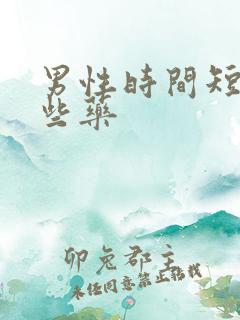 男性時間短
些藥
卯兔郡主
未经同意禁止转载